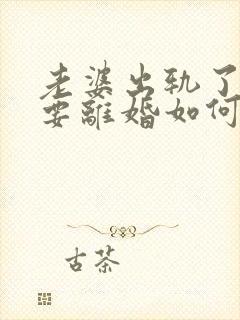 老婆出轨了
要離婚如何
古茶